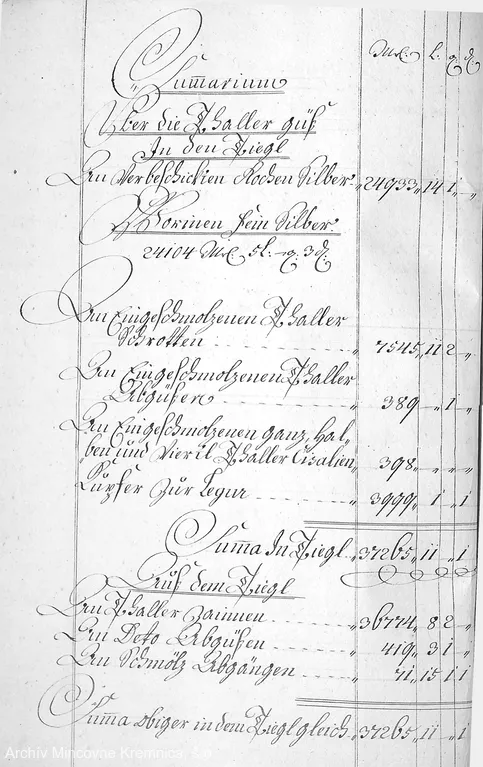 Mrk. l. q. d.
Summarium
Über die Thaller güß
In den Tiegl
An Verbeschickten Rochen Silber „ 24933„ 14 1„ „
Worinen Fein Silber
24104 Mrk. 5 l. – q. 3 d.
An Eingeschmolzenen Thaller
Schrotten „ 7545„ 11 2 „
An Eingeschmolzenen Thaller
Abgüßen „ 389 – „ 1 „
An Eingeschmolzenen ganz, Hal„
ben und Viertl Thaller Cisalien „ 398„ „ „ „
Kupfer Zur Legur „ 3999„ 1 „ 1
Summa In Tiegl „ 37265„ 11 „ 1
Auß dem Tiegl
An Thaller Zainnen „ 36774„ 8 2 „
An Deto Abgüßen „ 419„ 3 1 „
An Schmölz Abgängen „ 71„ 15 1 1
Summa obiger in dem Tiegl gleich „ 37265„ 11 „ 1
Archív Mincovne Kremnica